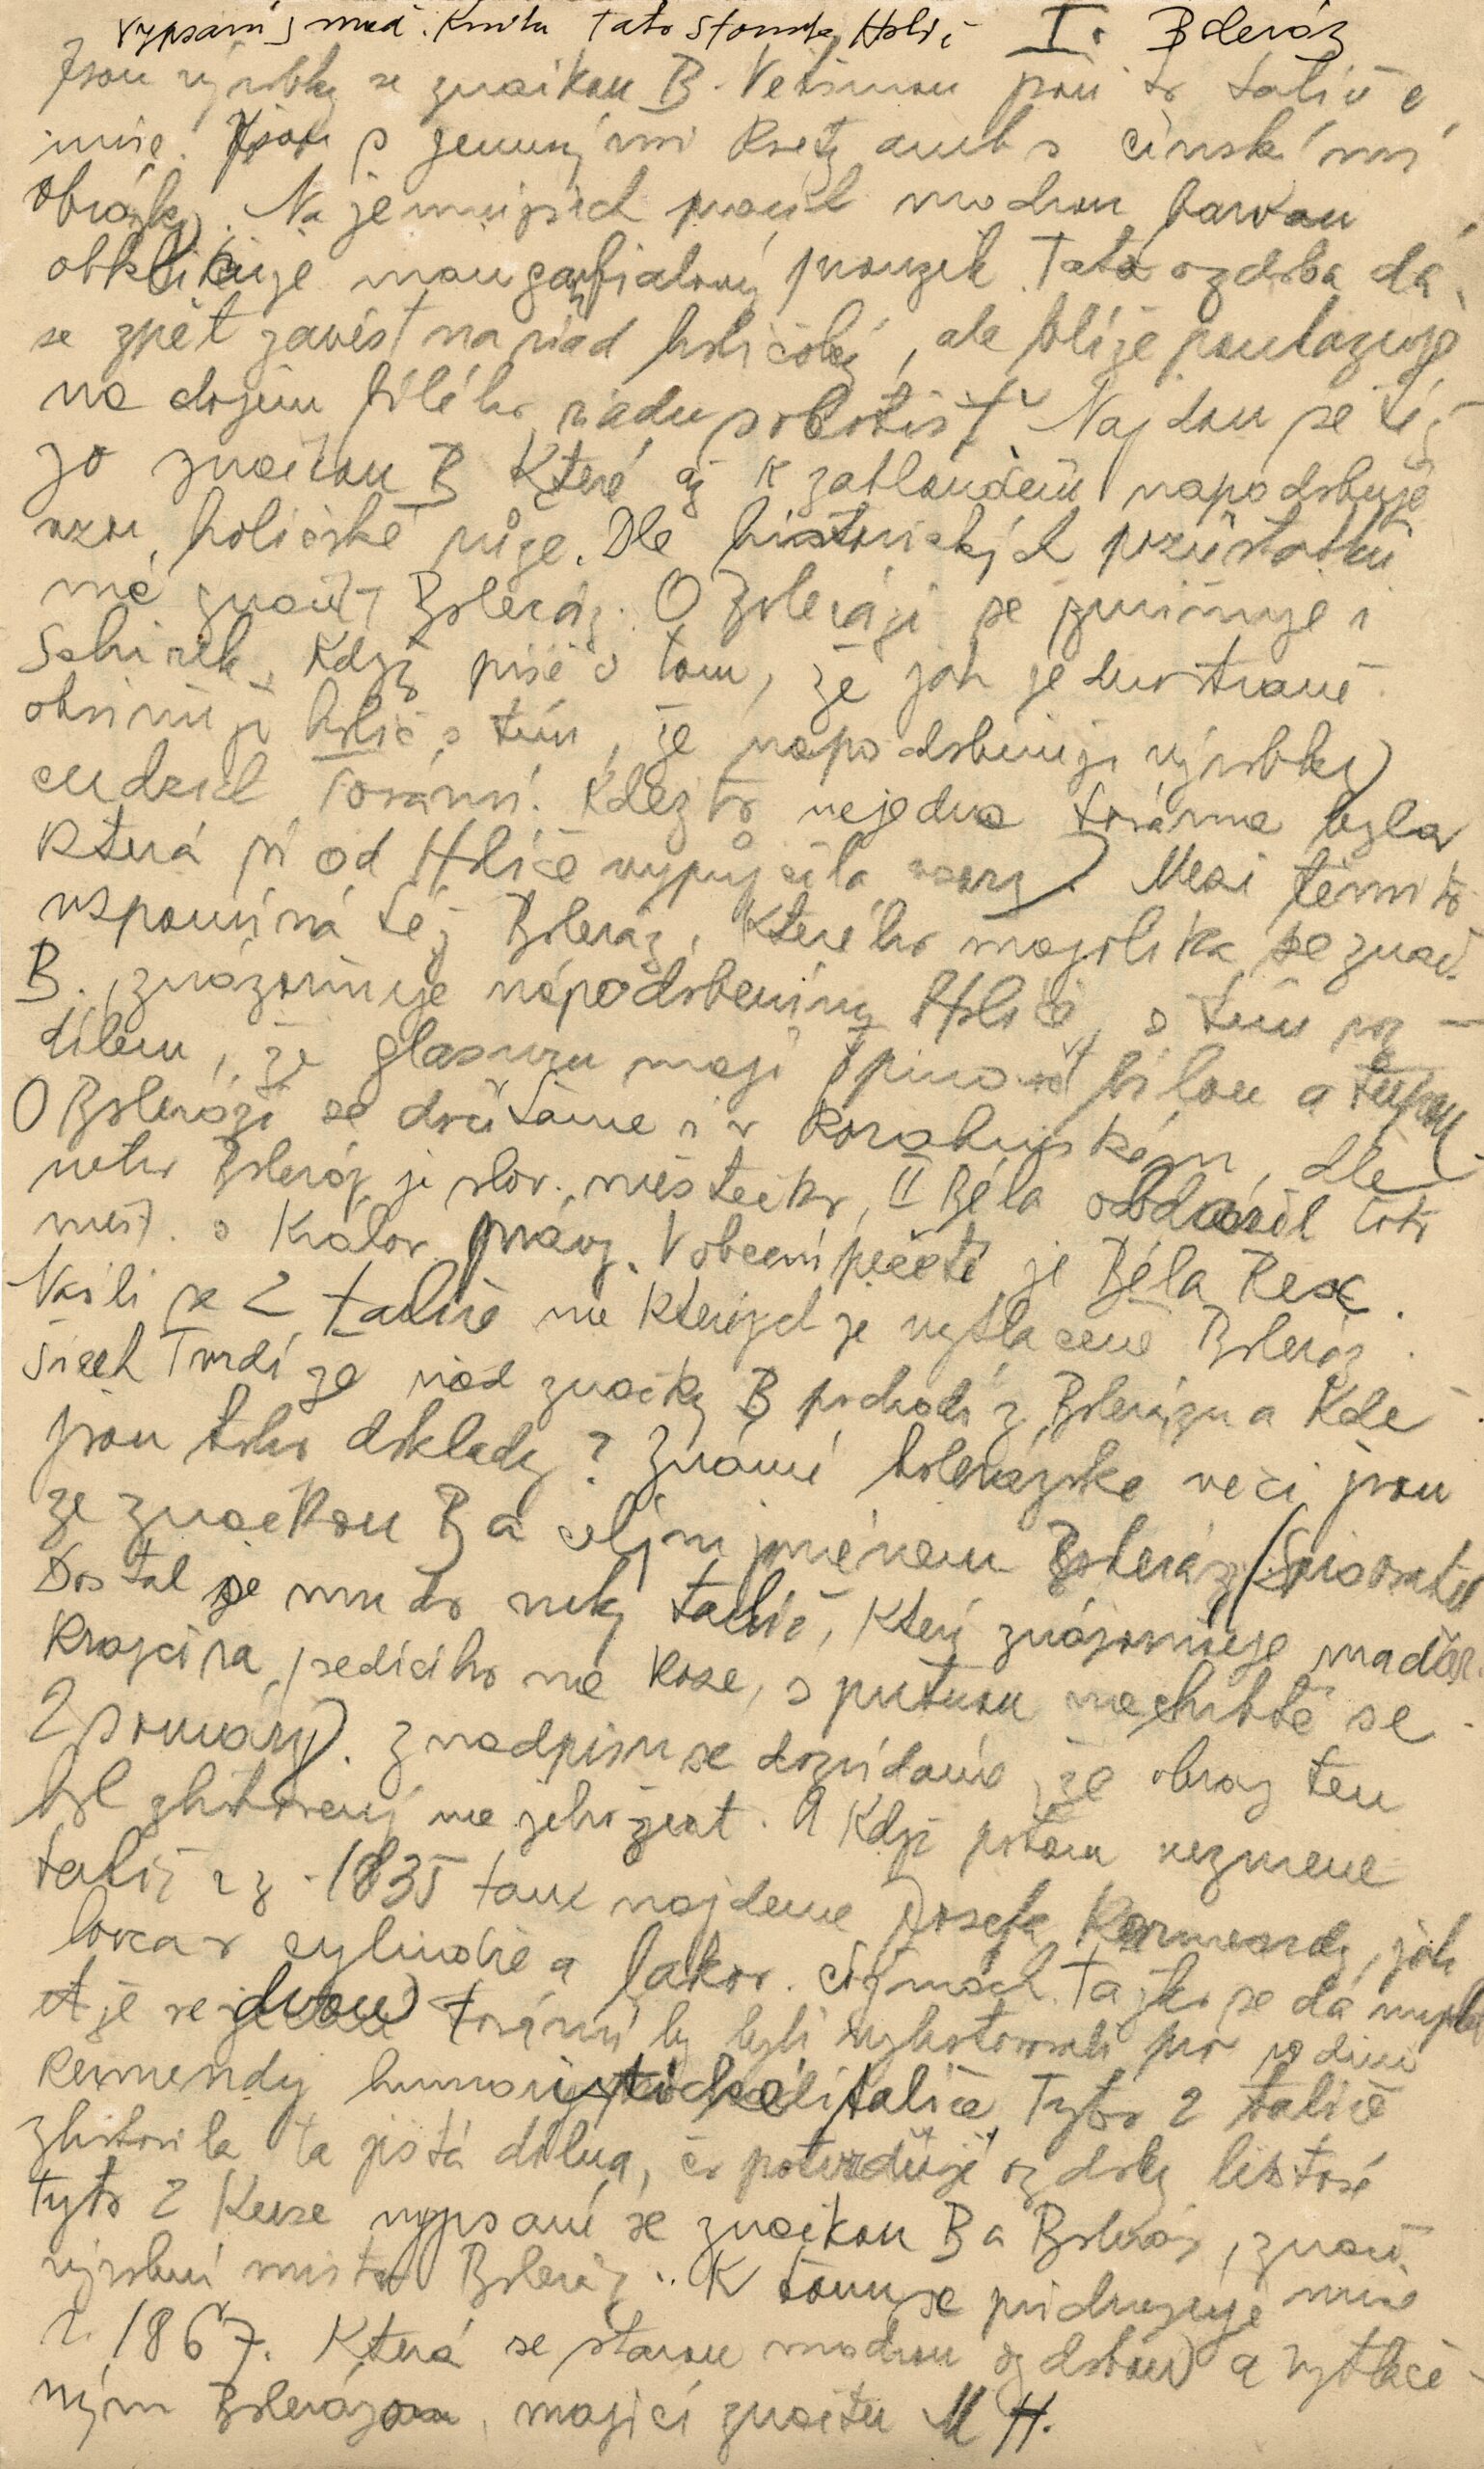 vypsaní s maď. Knihy Tato stomfa, Holič I. Boleráz
Jsou výrobky se značkou B. Vetšinou jsou to talíře
míse. Jsou s jemnými Kvety aneb s čínskými
obrázky. Na jemnejsích prací modrou barvou
obkličuje mangan fialový prouzek. Tato ozdoba dá
se zpět zavést na riad holičský, ale blíže poukazuje
na dojem bílého riadu sobotišť. Najdou se též
zo značkou B Které až k zabloudění napodobuje
vzor, holičské růže. Dle historických pozústatků
má značit Boleráz. O Bolerázi se zmiňuje i
Schirek, Když píše o tom, že jak jednostraně
obviňují holič s tím, že napodobuují výrobky
cudzích továrni. Kdežto nejedna továrna byla
Která si od Holíče vypujčila vzory. Mezi temito
vspomíná též Boleráz, Kterého majolika, se znač.
B. znázorňuje napodobeniny Holiče, s tím roz-
dílem, že glasuru mají špinavo bílou a tupou.
O Bolerázi se dočítáme i v Korabinském, dle
neho Boleráz je slov. městečko, II Béla obdařil toto
mest. s Králov. právy. V obecní pečeti je Béla Rex.
Našli se 2 talíře na Kterých je vytlačené Boleráz.
Šiech Tvrdí že riad značky B pochodí z Bolerázu a Kde
jsou toho doklady? Známé bolerázske veci jsou
ze značkou B a celým jménem Boleráz (Spisovatel
Dostal se mu do ruky talíř, Který znázorňuje maďar.
Krajčíra, sedíciho na Koze, s putnou na chrbtě se
2 somáry). Z nadpisu se dozvídáme, že obraz ten
byl zhotovený na jeho žert. A Když potom vezmeme
talíř z r. 1835 tam najdeme Josefa Kormendy, jak
lovca v cylindře a fakov. čižmách. Tažko se dá myslet
že ve dvou továrni by byli vyhotovovali pro rodinu
Kermendy humoristické talíře. Tyto 2 talíře
zhotovila ta jistá dílna, čo potvrdzuje ozdoby listové
tyto 2 Kuse vypsaní se značkou B a Boleráz, znač.
výrobní místo Boleráz. K tomu se pridružuje mísa
z. 1867. Která se starou modrou ozdobou a vytlače-
ným Bolerázom, majíci značku M H.